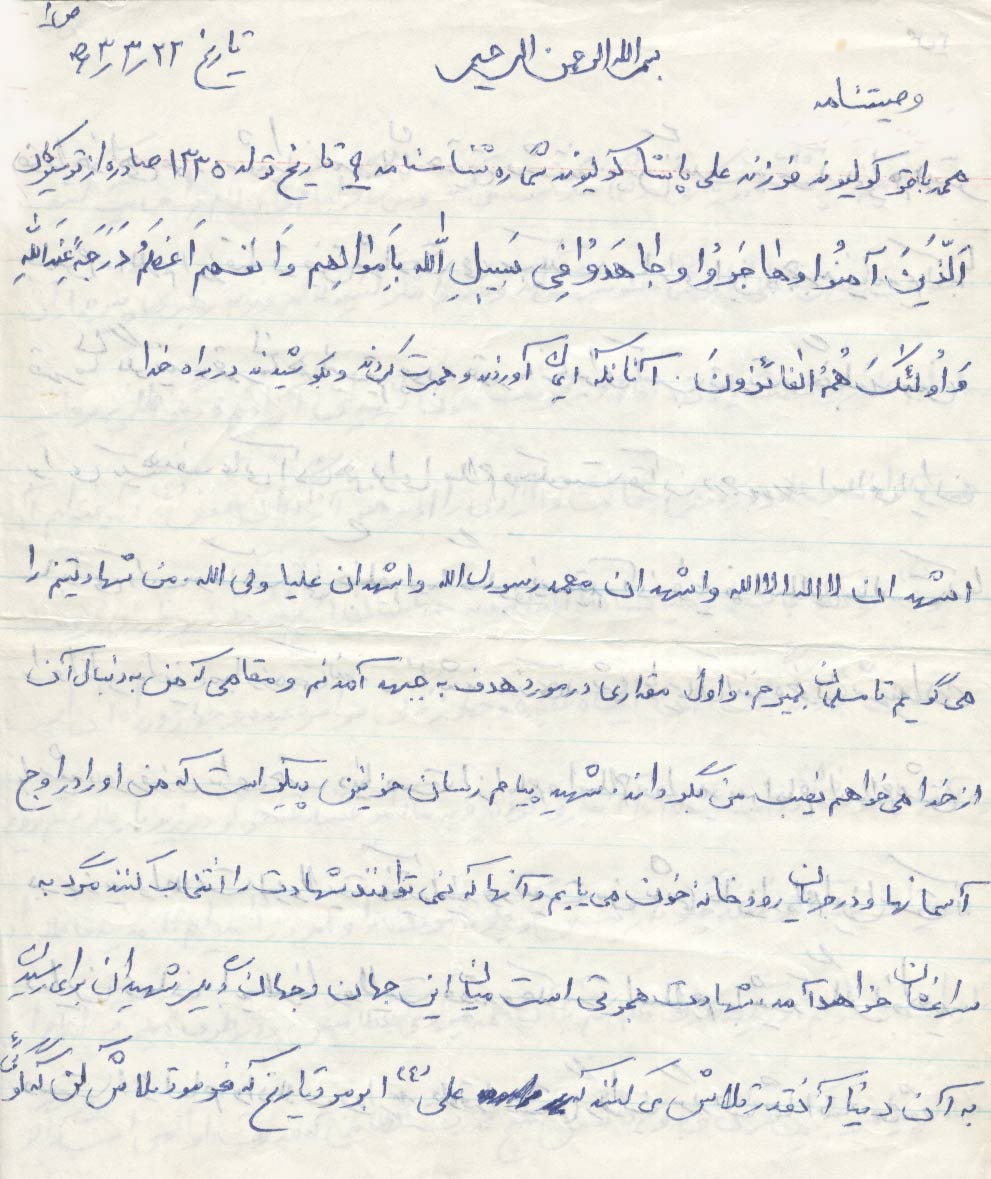 ص ۱
بسم الله الرحمن الرحیم
تاریخ ۲۲/۳/
وصیتنامه
محمد باقر کولیوند فرزند علی پاشا کولیوند شماره شناسنامه تاریخ تولد ۱۳۳۵ صادره از تویسرکان
اَلَّذینَ آمِنُوا وهاجَروُا وجاهَدوُا فِی سَبیلِ اللّه بِاَموالِهِم وَاَنفسهم اَعظَمُ دَرَجَةً عِندَاللّهِ
وَاُولئکَ هُمُ الفائزونَ. آنانکه ایمان آوردند و هجرت کردند و بکوشیدند در راه خدا
اشهد ان لااله الاالله واشهد ان محمد رسورل الله واشهد ان علیا ولی الله. من شهادتینم را
می گویم تا مسلمان بمیرم. و اول مقداری در مورد هدف به جبهه آمدنم و مقامی که من به دنبال آن
از خدا می خواهم نصیب من بگرداند. شهید پیام رسان خونین پیکر است که من او را در اوج
آسمانها و در جریان رودخانه خون می یابم و آنها که نمی توانند شهادت را انتخاب کنند مرگ به
سراغشان خواهد آمد. شهادت هجرتی است میان این جهان و جهان دیگر شهیدان برای رسیدن
به آن دنیا آنقدر تلاش می کنند که علی (ع) ابر مرد تاریخ که فرمود تلاش کن که گوئی